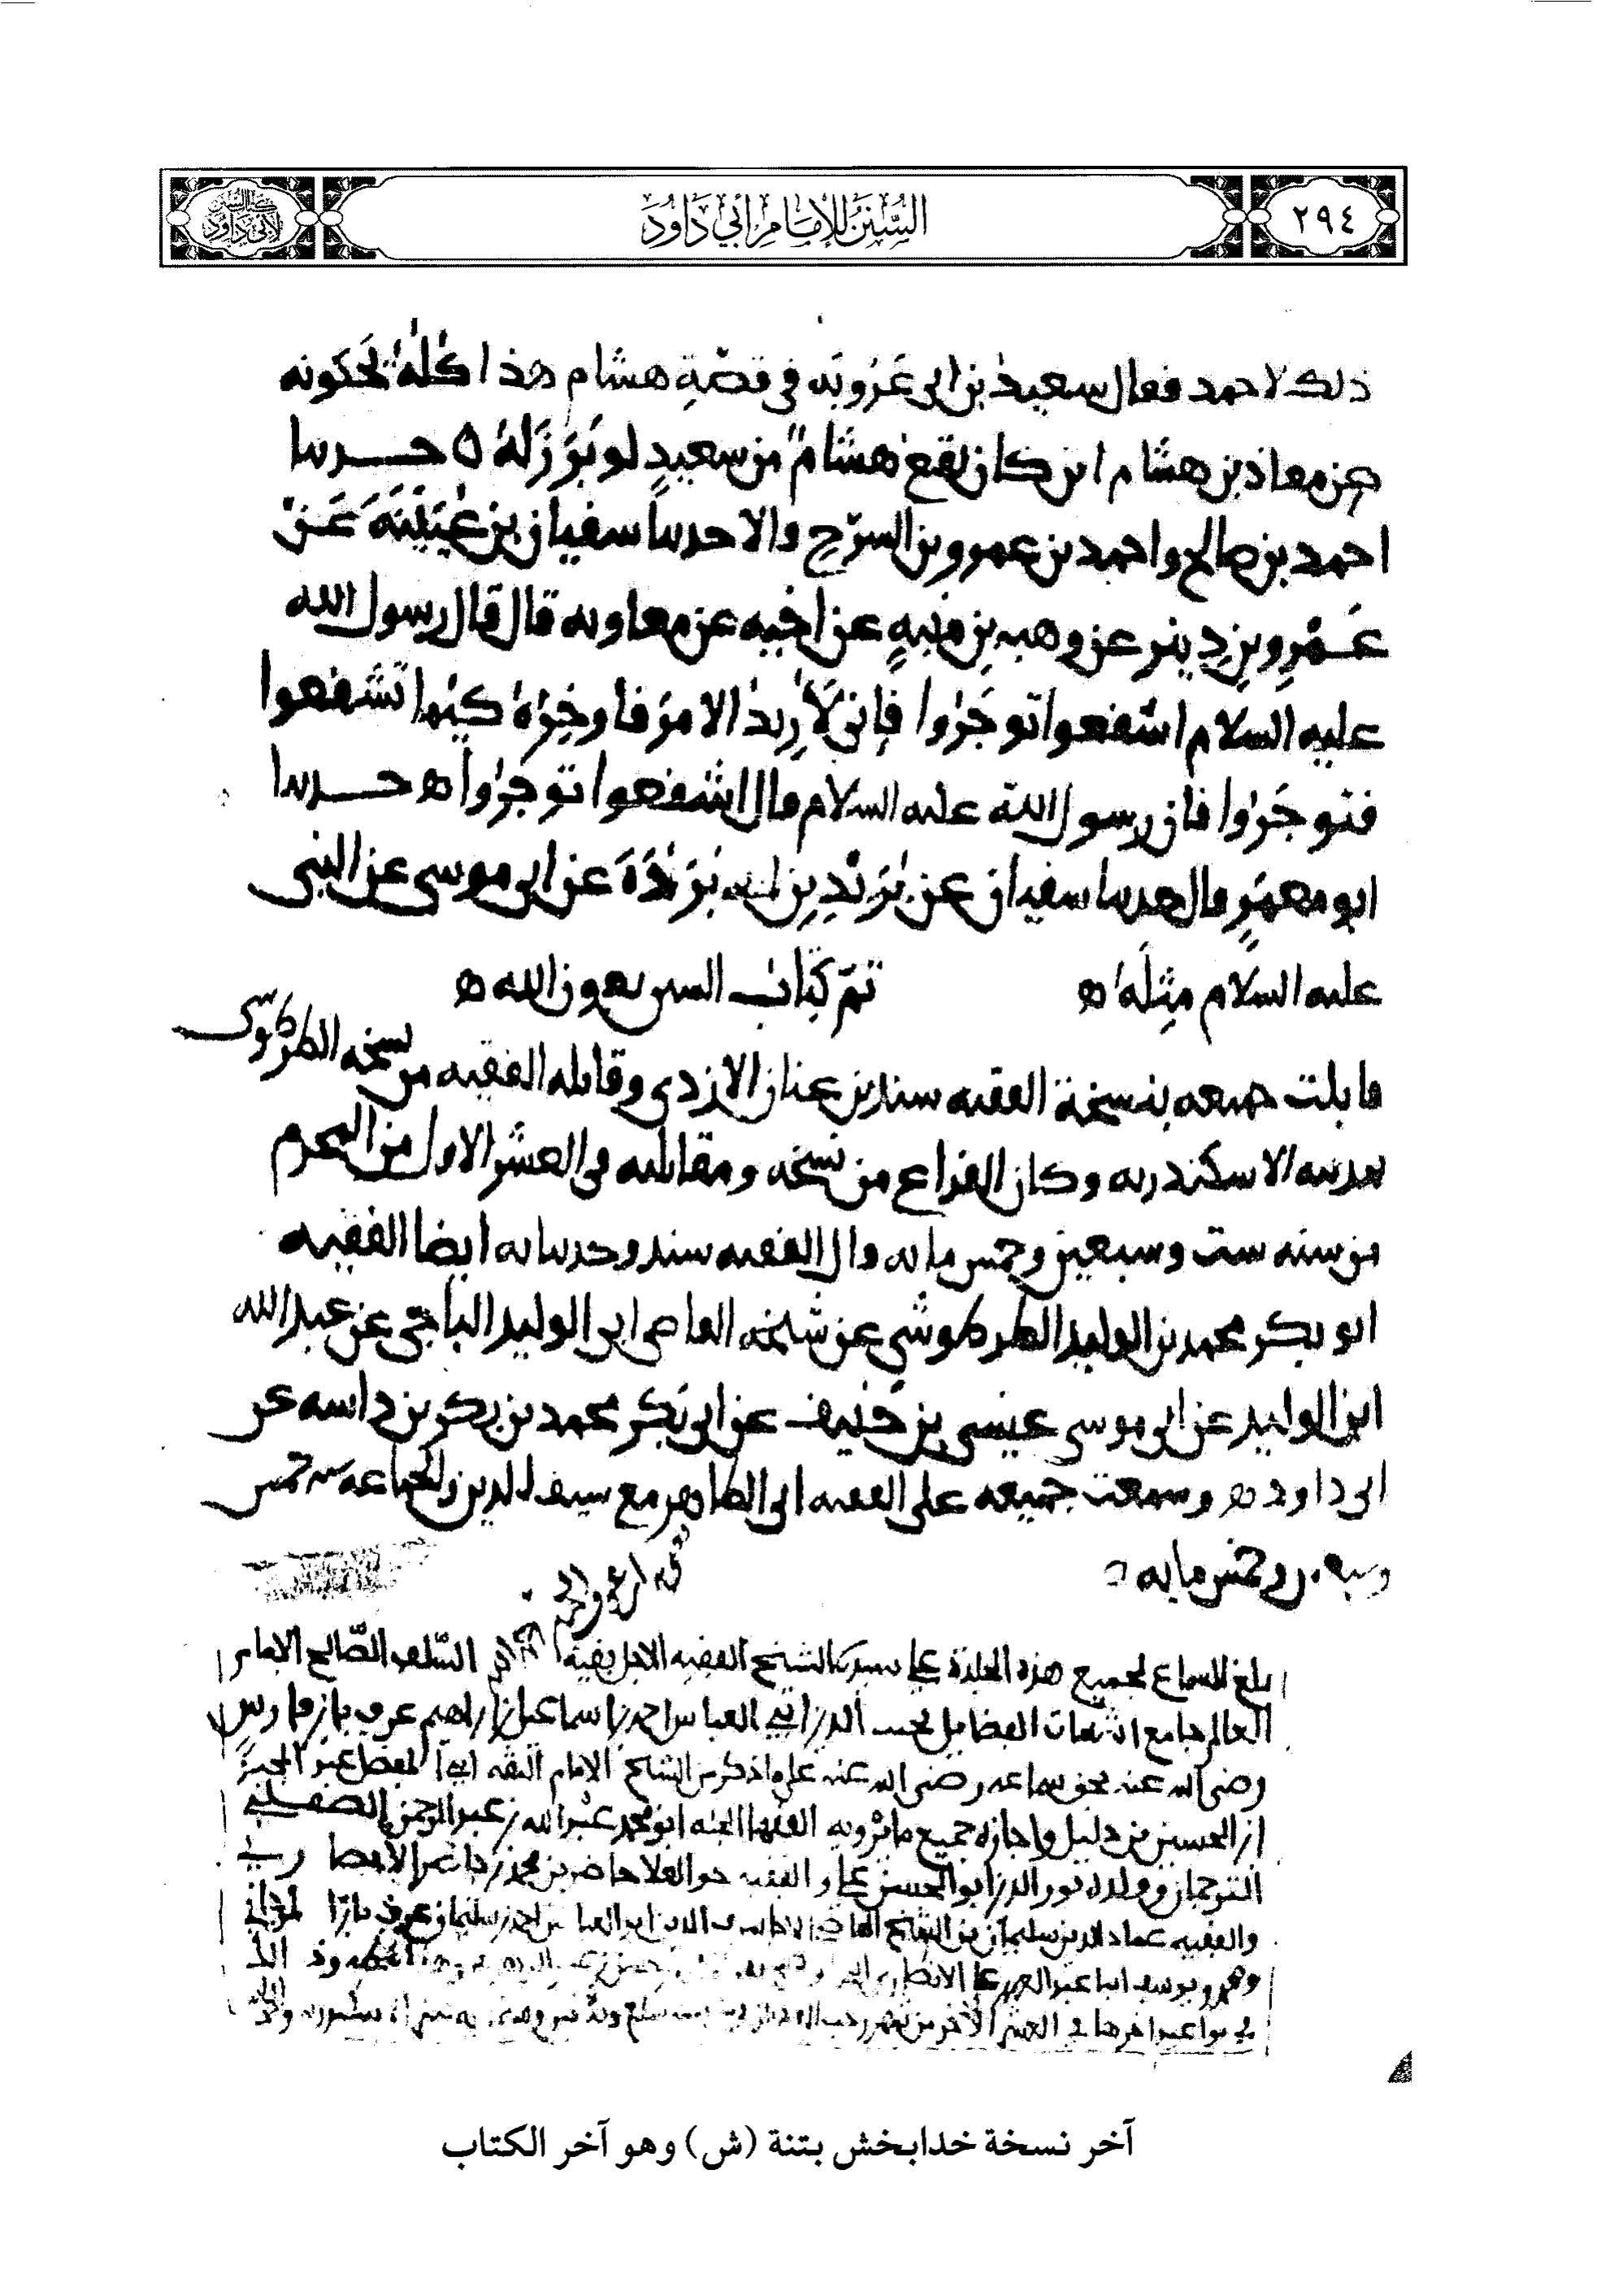 ٢٩٤
السُّنَنُ لِلإِمَامِ أَبِي دَاوُدَ
ذلك لاحمد فقال سعيد بن ابي عَرُوبَه في قصّةِ هشام هذا كلّه يحكونه
عن معاذ بن هشام اين كان يقع هشام من سعيدٍ لو بَرَزَ لَهُ ه حدثنا
احمد بن صالح واحمد بن عمرو بن السرّح قالا حدثنا سفيان بن عُيَيْنَةَ عَنْ
عَمْرِو بنِ دِينر عن وهب بنِ منبهٍ عن اخيه عن معاويه قال قال رسول الله
عليه السلام اشفعوا توجَرُوا فإني لَأُرِيدُ الامرَ فأوخِرُهُ كيما تشفعوا
فتوجَرُوا فان رسول الله عليه السلام قال اشفعوا توجَرُوا ه حدثنا
ابو معمرٍ قال حدثنا سفيان عن بُرَيْدِ بنِ ابي بُرْدَةَ عن ابي موسى عن النبي
عليه السلام مِثلَه ه تمّ كتاب السنن بعون الله ه
قابلت جميعه بنسخة الفقيه سند بن عنان الازدي وقابله الفقيه من نسخه الطرطوشي
بمدينه الاسكندريه وكان الفراغ من نسخه ومقابلته في العشر الاول من المحرم
من سنه ست وسبعين وخمس مايه قال الفقيه سند وحدثنا به ايضا الفقيه
ابو بكر محمد بن الوليد الطرطوشي عن شيخه القاضي ابي الوليد الباجي عن عبد الله
ابن الوليد عن ابي موسى عيسى بن حَنيف عن ابي بكر محمد بن بكر بن داسه عن
ابي داود ه وسمعت جميعه على الفقيه ابي الطاهر مع سيف الدين والجماعه سنه خمس
وسبعين وخمس مايه ه
بلغ السماع لجميع هذه المجلدة على سيدنا الشيخ الفقيه الاجل بقية السلف الصّالح الامام
العالم جامع اشتات الفضايل محب الدين ابي العباس احمد بن اسماعيل بن ابراهيم عرف بابن فارس
رضى الله عنه بحق سماعه رضى الله عنه على ما ذكر من الشيخ الامام الثقه ابي المفضل عبد المجيد
ابن الحسين بن دليل واجازه جميع ما يرويه الفقها ابو محمد عبد الله بن عبد الرحمن الصقلي
الترجمان وولده نور الدين ابو الحسن علي والفقيه حاضر بن محمد الانصاري
والفقيه عماد الدين سليمان بن الشيخ ابي العباس احمد بن سليمان عرف بابن
في العشر الآخر من شهر
آخر نسخة خدابخش بتنة (ش) وهو آخر الكتاب